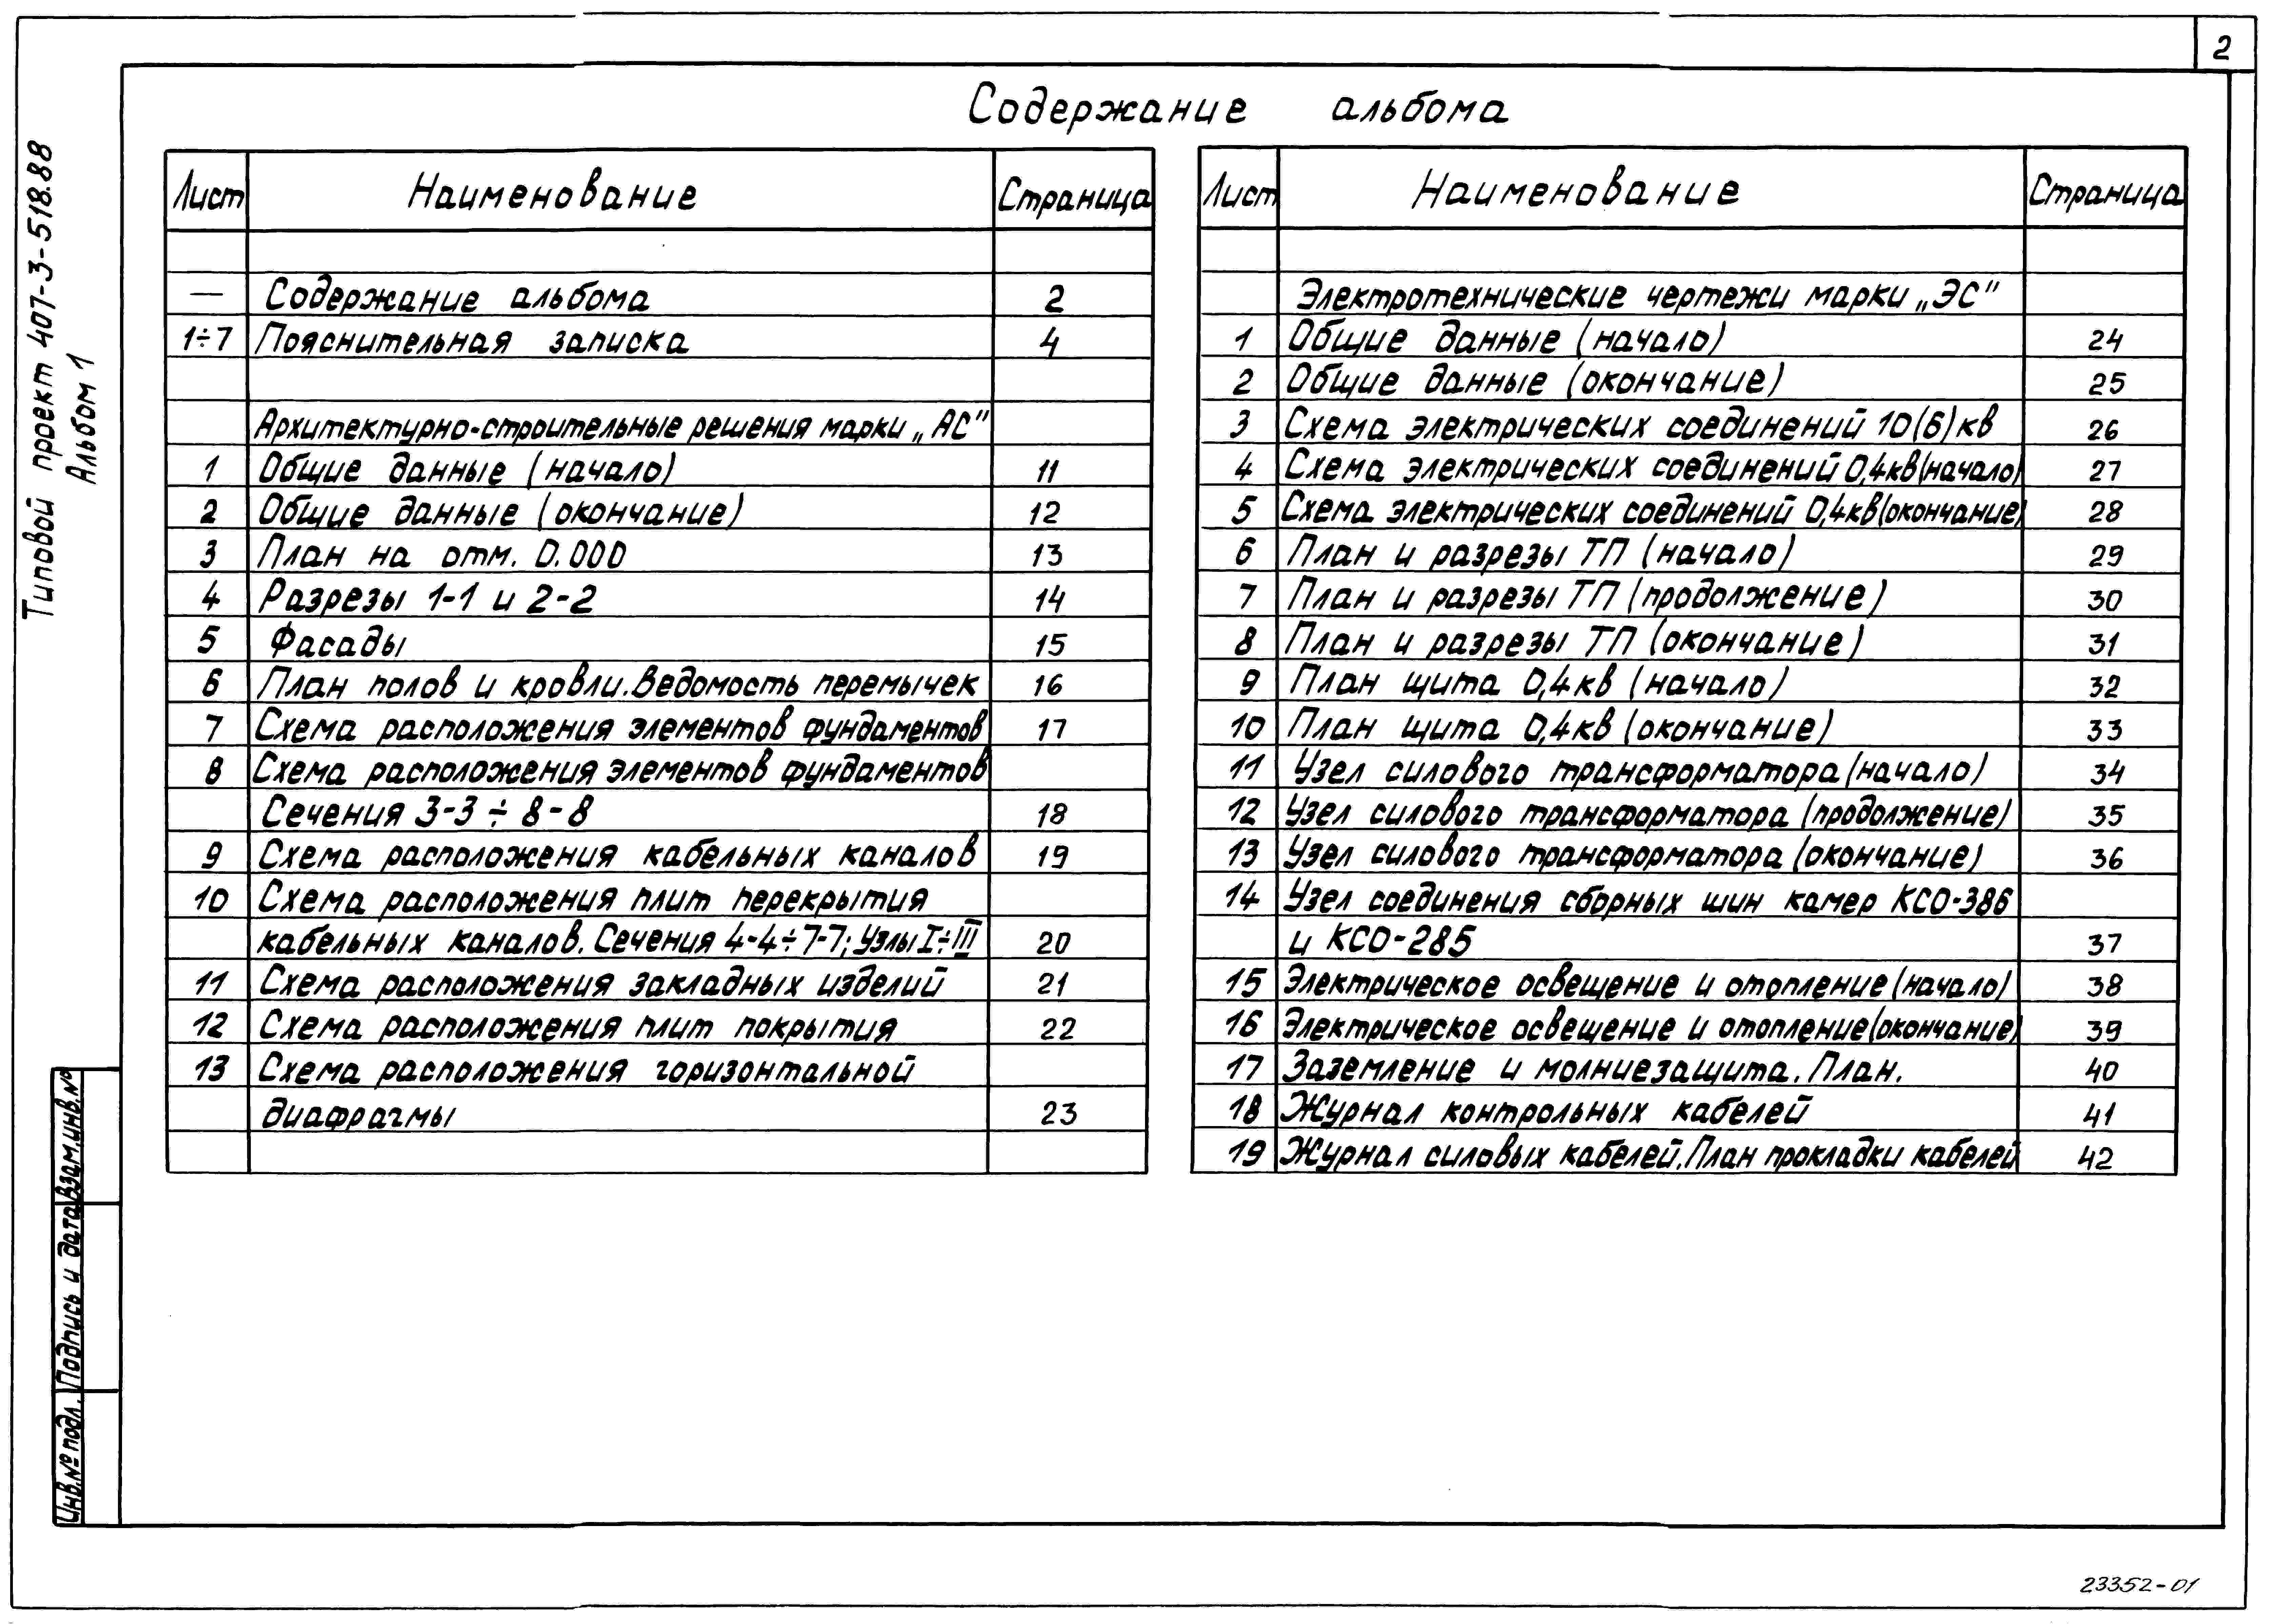 2
Содержание альбома
Типовой проект 407-3-518.88
Альбом 1
Лист Наименование Страница
— Содержание альбома 2
1÷7 Пояснительная записка 4
Архитектурно-строительные решения марки „АС"
1 Общие данные (начало) 11
2 Общие данные (окончание) 12
3 План на отм. 0.000 13
4 Разрезы 1-1 и 2-2 14
5 Фасады 15
6 План полов и кровли. Ведомость перемычек 16
7 Схема расположения элементов фундаментов 17
8 Схема расположения элементов фундаментов
Сечения 3-3 ÷ 8-8 18
9 Схема расположения кабельных каналов 19
10 Схема расположения плит перекрытия
кабельных каналов. Сечения 4-4÷7-7; Узлы I÷III 20
11 Схема расположения закладных изделий 21
12 Схема расположения плит покрытия 22
13 Схема расположения горизонтальной
диафрагмы 23
Лист Наименование Страница
Электротехнические чертежи марки „ЭС"
1 Общие данные (начало) 24
2 Общие данные (окончание) 25
3 Схема электрических соединений 10(6)кв 26
4 Схема электрических соединений 0,4кв(начало) 27
5 Схема электрических соединений 0,4кв(окончание) 28
6 План и разрезы ТП (начало) 29
7 План и разрезы ТП (продолжение) 30
8 План и разрезы ТП (окончание) 31
9 План щита 0,4кв (начало) 32
10 План щита 0,4кв (окончание) 33
11 Узел силового трансформатора (начало) 34
12 Узел силового трансформатора (продолжение) 35
13 Узел силового трансформатора (окончание) 36
14 Узел соединения сборных шин камер КСО-386
и КСО-285 37
15 Электрическое освещение и отопление (начало) 38
16 Электрическое освещение и отопление(окончание) 39
17 Заземление и молниезащита. План. 40
18 Журнал контрольных кабелей 41
19 Журнал силовых кабелей. План прокладки кабелей 42
Инв.№ подл. Подпись и дата Взам.инв.№
23352-01